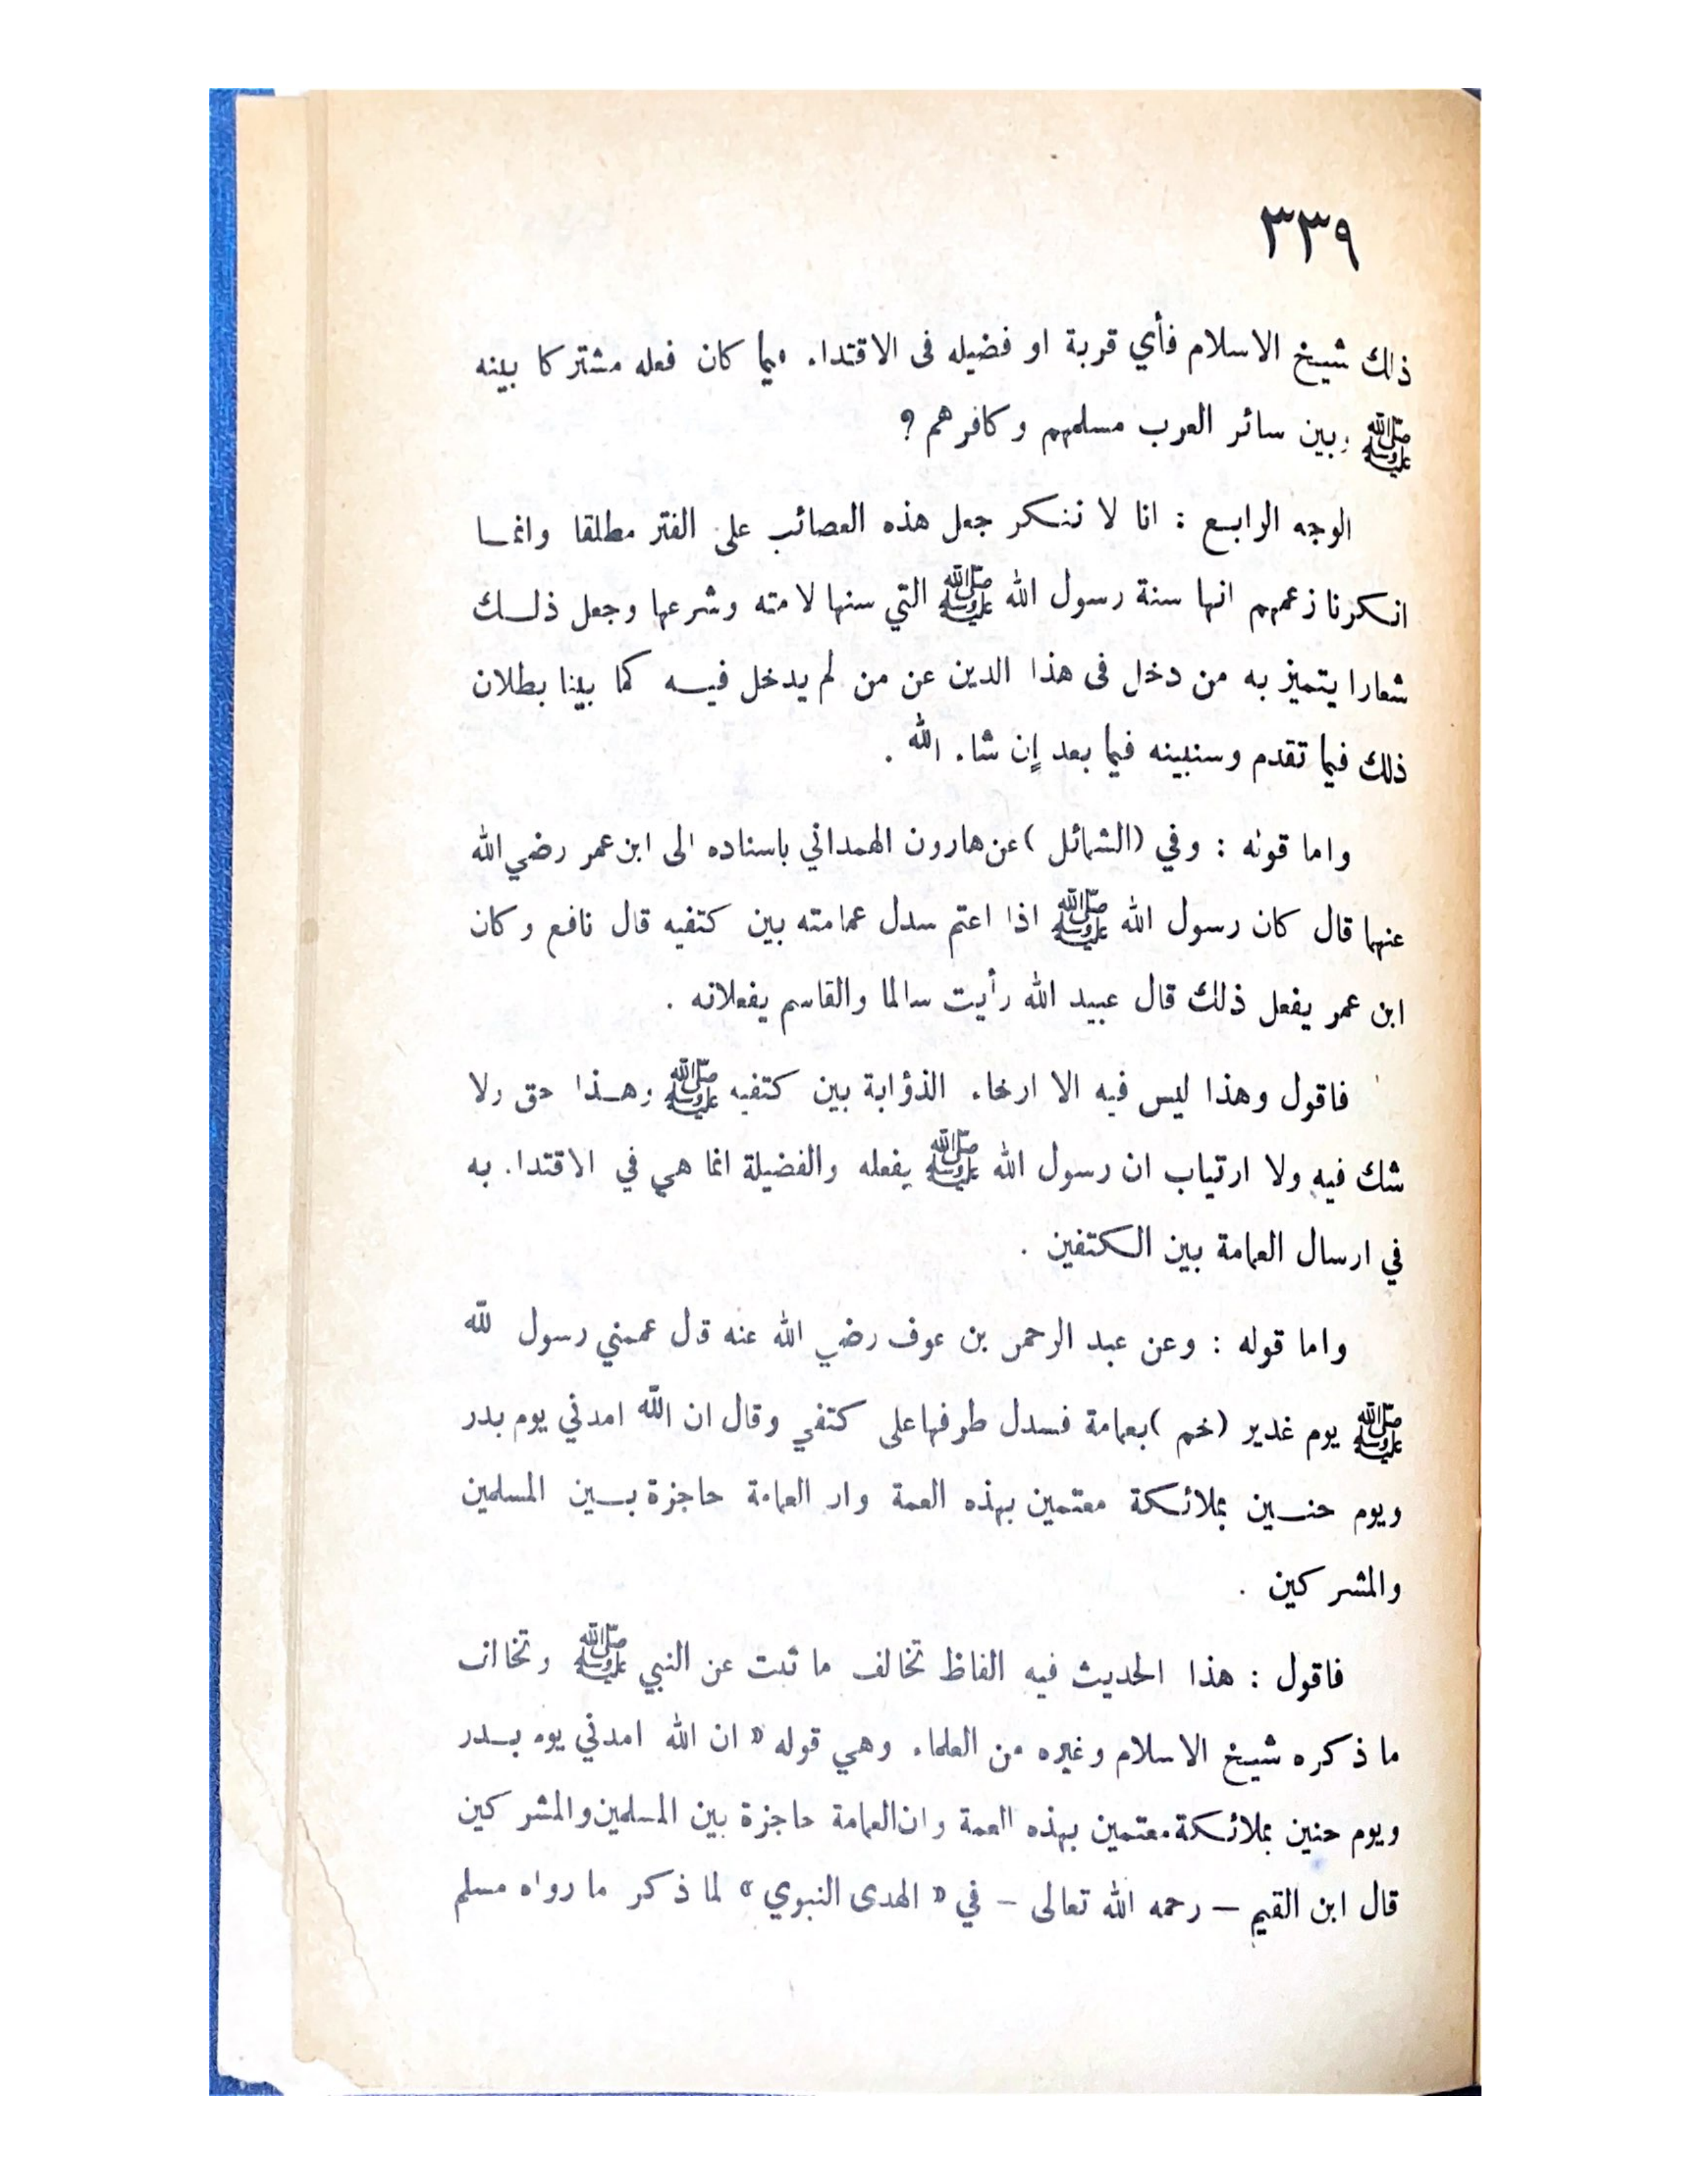 ٣٣٩
ذلك شيخ الاسلام فأي قربة او فضيله فى الاقتداء فيما كان فعله مشتركا بينه
ﷺ وبين سائر العرب مسلمهم وكافرهم ؟
الوجه الرابع : انا لا ننكر جعل هذه العصائب على الغتر مطلقا وانما
انكرنا زعمهم انها سنة رسول الله ﷺ التي سنها لامته وشرعها وجعل ذلك
شعارا يتميز به من دخل فى هذا الدين عن من لم يدخل فيه كما بينا بطلان
ذلك فيما تقدم وسنبينه فيما بعد إن شاء الله .
واما قوله : وفي (الشمائل) عن هارون الهمداني باسناده الى ابن عمر رضي الله
عنهما قال كان رسول الله ﷺ اذا اعتم سدل عمامته بين كتفيه قال نافع وكان
ابن عمر يفعل ذلك قال عبيد الله رأيت سالما والقاسم يفعلانه .
فاقول وهذا ليس فيه الا ارخاء الذؤابة بين كتفيه ﷺ وهذا حق ولا
شك فيه ولا ارتياب ان رسول الله ﷺ يفعله والفضيلة انما هي في الاقتداء به
في ارسال العمامة بين الكتفين .
واما قوله : وعن عبد الرحمن بن عوف رضي الله عنه قال عممني رسول الله
ﷺ يوم غدير (خم) بعمامة فسدل طرفها على كتفي وقال ان الله امدني يوم بدر
ويوم حنين بملائكة معتمين بهذه العمة وان العمامة حاجزة بين المسلمين
والمشركين .
فاقول : هذا الحديث فيه الفاظ تخالف ما ثبت عن النبي ﷺ وتخالف
ما ذكره شيخ الاسلام وغيره من العلماء وهي قوله « ان الله امدني يوم بدر
ويوم حنين بملائكة معتمين بهذه العمة وان العمامة حاجزة بين المسلمين والمشركين
قال ابن القيم – رحمه الله تعالى – في « الهدى النبوي » لما ذكر ما رواه مسلم